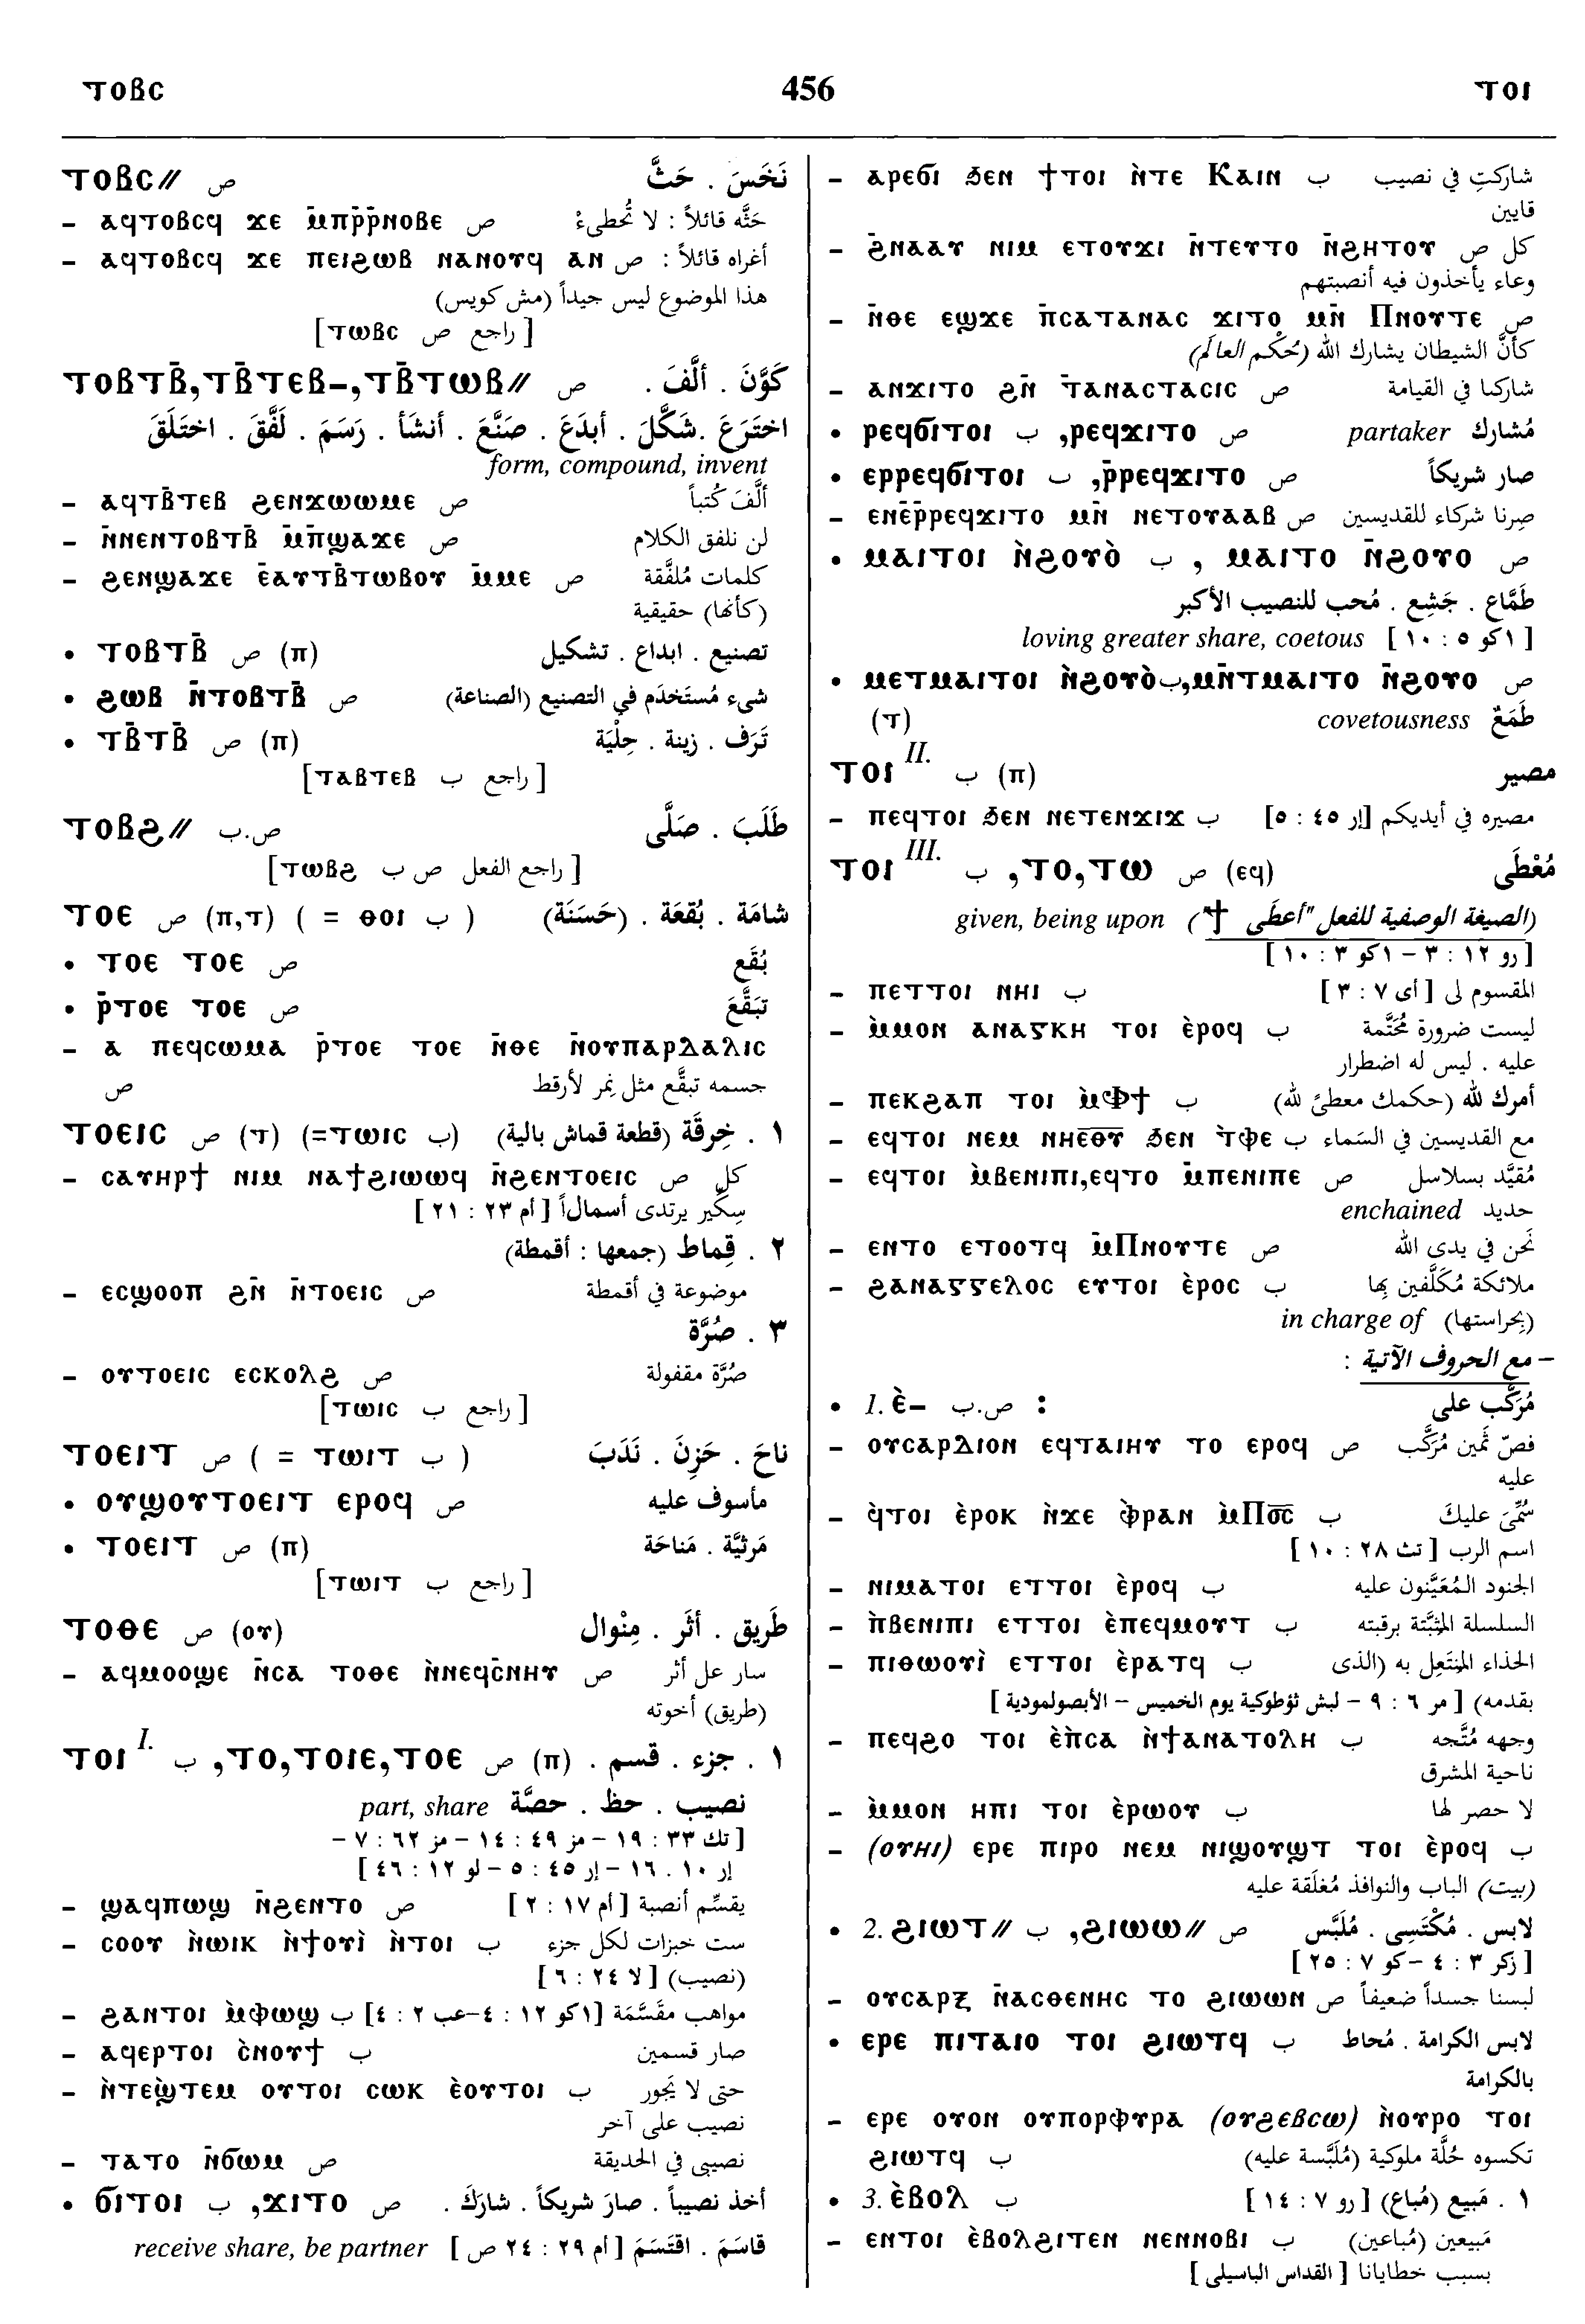 ⲧⲟⲃⲥ 456 ⲧⲟⲓ
ⲧⲟⲃⲥ// ص نَخَسَ . حَثَّ
– ⲁϥⲧⲟⲃⲥϥ ϫⲉ ⲙ̄ⲡⲣ̄ⲣⲛⲟⲃⲉ ص حَثَّه قائلاً : لا تُخطىءْ
– ⲁϥⲧⲟⲃⲥϥ ϫⲉ ⲡⲉⲓϩⲱⲃ ⲛⲁⲛⲟⲩϥ ⲁⲛ ص أغراه قائلاً :
هذا الموضوع ليس جيداً (مش كويس)
[ راجع ص ⲧⲱⲃⲥ]
ⲧⲟⲃⲧⲃ̄,ⲧⲃ̄ⲧⲉⲃ–,ⲧⲃ̄ⲧⲱⲃ// ص كَوَّنَ . ألَّفَ .
اختَرَعَ .شَكَّلَ . أبدَعَ . صَنَّعَ . أنشَأ . رَسَمَ . لَفَّقَ . اختَلَقَ
form, compound, invent
– ⲁϥⲧⲃ̄ⲧⲉⲃ ϩⲉⲛϫⲱⲱⲙⲉ ص ألَّفَ كُتباً
– ⲛ̄ⲛⲉⲛⲧⲟⲃⲧⲃ̄ ⲙ̄ⲡ̄ϣⲁϫⲉ ص لن نلفق الكلام
– ϩⲉⲛϣⲁϫⲉ ⲉ̄ⲁⲩⲧⲃ̄ⲧⲱⲃⲟⲩ ⲙ̄ⲙⲉ ص كلمات مُلفَّقة
(كأنها) حقيقية
• ⲧⲟⲃⲧⲃ̄ ص (ⲡ) تصنيع . ابداع . تشكيل
• ϩⲱⲃ ⲛ̄ⲧⲟⲃⲧⲃ̄ ص شىء مُستَخدَم في التصنيع (الصناعة)
• ⲧⲃ̄ⲧⲃ̄ ص (ⲡ) تَرَف . زينة . حِلْيَة
[ راجع ب ⲧⲁⲃⲧⲉⲃ]
ⲧⲟⲃϩ// ص.ب طَلَبَ . صَلَّى
[ راجع الفعل ص ب ⲧⲱⲃϩ]
ⲧⲟⲉ ص (ⲡ,ⲧ) ( = ⲑⲟⲓ ب ) شامَة . بُقعَة . (حَسَنَة)
• ⲧⲟⲉ ⲧⲟⲉ ص بُقَع
• ⲣ̄ⲧⲟⲉ ⲧⲟⲉ ص تبَقَّعَ
– ⲁ ⲡⲉϥⲥⲱⲙⲁ ⲣ̄ⲧⲟⲉ ⲧⲟⲉ ⲛ̄ⲑⲉ ⲛ̄ⲟⲩⲡⲁⲣⲇⲁⲗⲓⲥ
ص جسمه تبقَّع مثل نِمر لأرقط
ⲧⲟⲉⲓⲥ ص (ⲧ) (=ⲧⲱⲓⲥ ب) ١ . خِرقَة (قطعة قماش بالية)
– ⲥⲁⲩⲏⲣϯ ⲛⲓⲙ ⲛⲁϯϩⲓⲱⲱϥ ⲛ̄ϩⲉⲛⲧⲟⲉⲓⲥ ص كل
سِكِّير يرتدى أسمالاً [ أم ٢٣ : ٢١ ]
٢ . قِماط (جمعها : أقمطة)
– ⲉⲥϣⲟⲟⲡ ϩⲛ̄ ⲛ̄ⲧⲟⲉⲓⲥ ص موضوعة في أقمطة
٣ . صُرَّة
– ⲟⲩⲧⲟⲉⲓⲥ ⲉⲥⲕⲟⲗϩ ص صُرَّة مقفولة
[ راجع ب ⲧⲱⲓⲥ]
ⲧⲟⲉⲓⲧ ص ( = ⲧⲱⲓⲧ ب ) ناحَ . حَزِنَ . نَدَبَ
• ⲟⲩϣⲟⲩⲧⲟⲉⲓⲧ ⲉⲣⲟϥ ص مأسوف عليه
• ⲧⲟⲉⲓⲧ ص (ⲡ) مَرثيَّة . مَناحَة
[ راجع ب ⲧⲱⲓⲧ]
ⲧⲟⲑⲉ ص (ⲟⲩ) طَريق . أثَر . مِنْوال
– ⲁϥⲙⲟⲟϣⲉ ⲛ̄ⲥⲁ ⲧⲟⲑⲉ ⲛ̀ⲛⲉϥⲥ̄ⲛⲏⲩ ص سار عل أثر
(طريق) أخوته
ⲧⲟⲓ I. ب ,ⲧⲟ,ⲧⲟⲓⲉ,ⲧⲟⲉ ص (ⲡ) ١ . جزء . قسم .
نصيب . حظ . حصَّة part, share
[ تك ٣٣ : ١٩ – مز ٤٩ : ١٤ – مز ٦٢ : ٧ –
إر ١٠ . ١٦ – إر ٤٥ : ٥ – لو ١٢ : ٤٦ ]
– ϣⲁϥⲡⲱϣ ⲛ̄ϩⲉⲛⲧⲟ ص يقسِّم أنصبة [ أم ١٧ : ٢ ]
– ⲥⲟⲟⲩ ⲛ̀ⲱⲓⲕ ⲛ̀ϯⲟⲩⲓ̀ ⲛ̀ⲧⲟⲓ ب ست خبزات لكل جزء
(نصيب) [ لا ٢٤ : ٦ ]
– ϩⲁⲛⲧⲟⲓ ⲙ̀ⲫⲱϣ ب مواهب مقَسَّمَة [١كو ١٢ : ٤–عب ٢ : ٤]
– ⲁϥⲉⲣⲧⲟⲓ ⲥ̀ⲛⲟⲩϯ ب صار قسمين
– ⲛ̀ⲧⲉϣ̀ⲧⲉⲙ ⲟⲩⲧⲟⲓ ⲥⲱⲕ ⲉ̀ⲟⲩⲧⲟⲓ ب حتى لا يَجور
نصيب على آخر
– ⲧⲁⲧⲟ ⲛ̄ϭⲱⲙ ص نصيبى في الحديقة
• ϭⲓⲧⲟⲓ ب ,ϫⲓⲧⲟ ص أخذ نصيباً . صارَ شريكاً . شارَكَ .
قاسَمَ . اقتَسَمَ [ أم ٢٩ : ٢٤ ص ] receive share, be partner
– ⲁⲣⲉϭⲓ ϧⲉⲛ ϯⲧⲟⲓ ⲛ̀ⲧⲉ Ⲕⲁⲓⲛ ب شاركتِ في نصيب
قايين
– ϩ̄ⲛⲁⲁⲩ ⲛⲓⲙ ⲉⲧⲟⲩϫⲓ ⲛ̄ⲧⲉⲩⲧⲟ ⲛ̄ϩⲏⲧⲟⲩ ص كل
وعاء يأخذون فيه أنصبتهم
– ⲛ̄ⲑⲉ ⲉϣϫⲉ ⲡ̄ⲥⲁⲧⲁⲛⲁⲥ ϫⲓⲧⲟ ⲙⲛ̄ Ⲡⲛⲟⲩⲧⲉ ص
كأنَّ الشيطان يشارك الله (حُكْم العالَم)
– ⲁⲛϫⲓⲧⲟ ϩⲛ̄ ⲧ̄ⲁⲛⲁⲥⲧⲁⲥⲓⲥ ص شاركنا في القيامة
• ⲣⲉϥϭⲓⲧⲟⲓ ب ,ⲣⲉϥϫⲓⲧⲟ ص مُشارك partaker
• ⲉⲣⲣⲉϥϭⲓⲧⲟⲓ ب ,ⲣ̄ⲣⲉϥϫⲓⲧⲟ ص صار شريكاً
– ⲉⲛⲉ̄ⲣⲣⲉϥϫⲓⲧⲟ ⲙⲛ̄ ⲛⲉⲧⲟⲩⲁⲁⲃ ص صِرنا شركاء للقديسين
• ⲙⲁⲓⲧⲟⲓ ⲛ̀ϩⲟⲩⲟ̀ ب , ⲙⲁⲓⲧⲟ ⲛ̄ϩⲟⲩⲟ ص
طَمَّاع . جَشِع . مُحب للنصيب الأكبر
loving greater share, coetous [ ١كو ٥ : ١٠ ]
• ⲙⲉⲧⲙⲁⲓⲧⲟⲓ ⲛ̀ϩⲟⲩⲟ̀ب,ⲙⲛ̄ⲧⲙⲁⲓⲧⲟ ⲛ̄ϩⲟⲩⲟ ص
(ⲧ) طَمَعٌ covetousness
ⲧⲟⲓ II. ب (ⲡ) مصير
– ⲡⲉϥⲧⲟⲓ ϧⲉⲛ ⲛⲉⲧⲉⲛϫⲓϫ ب مصيره في أيديكم [إر ٤٥ : ٥]
ⲧⲟⲓ III. ب ,ⲧⲟ,ⲧⲱ ص (ⲉϥ) مُعْطَى
(الصيغة الوصفية للفعل "أعطَى ϯ") given, being upon
[ رو ١٢ : ٣ – ١كو ٣ : ١٠ ]
– ⲡⲉⲧⲧⲟⲓ ⲛⲏⲓ ب المقسوم لى [ أى ٧ : ٣ ]
– ⲙ̀ⲙⲟⲛ ⲁⲛⲁⲅⲕⲏ ⲧⲟⲓ ⲉ̀ⲣⲟϥ ب ليست ضرورة مُحَتَّمة
عليه . ليس له اضطرار
– ⲡⲉⲕϩⲁⲡ ⲧⲟⲓ ⲙ̀Ⲫϯ ب أمرك لله (حكمك معطىً لله)
– ⲉϥⲧⲟⲓ ⲛⲉⲙ ⲛⲏⲉ̅ⲑ̅ⲩ̅ ϧⲉⲛ ⲧ̀ⲫⲉ ب مع القديسين في السَماء
– ⲉϥⲧⲟⲓ ⲙ̀ⲃⲉⲛⲓⲡⲓ,ⲉϥⲧⲟ ⲙ̄ⲡⲉⲛⲓⲡⲉ ص مُقيَّد بسلاسل
حديد enchained
– ⲉⲛⲧⲟ ⲉⲧⲟⲟⲧϥ ⲙ̄Ⲡⲛⲟⲩⲧⲉ ص نَحن في يدى الله
– ϩⲁⲛⲁⲅⲅⲉⲗⲟⲥ ⲉⲩⲧⲟⲓ ⲉ̀ⲣⲟⲥ ب ملائكة مُكَلَّفين بِها
(بِحراستها) in charge of
– مع الحروف الآتية :
• 1. ⲉ̀– ص.ب : مُرَكَّب على
– ⲟⲩⲥⲁⲣⲇⲓⲟⲛ ⲉϥⲧⲁⲓⲏⲩ ⲧⲟ ⲉⲣⲟϥ ص فصّ ثَمين مُرَكَّب
عليه
– ϥ̀ⲧⲟⲓ ⲉ̀ⲣⲟⲕ ⲛ̀ϫⲉ ⲫ̀ⲣⲁⲛ ⲙ̀Ⲡⲟ̅ⲥ̅ ب سُمِّىَ عليكَ
اسم الرب [ تث ٢٨ : ١٠ ]
– ⲛⲓⲙⲁⲧⲟⲓ ⲉⲧⲧⲟⲓ ⲉ̀ⲣⲟϥ ب الجنود المُعَيَّنون عليه
– ⲡ̀ⲃⲉⲛⲓⲡⲓ ⲉⲧⲧⲟⲓ ⲉ̀ⲡⲉϥⲙⲟⲩⲧ ب السلسلة المثَبَّتة برقبته
– ⲡⲓⲑⲱⲟⲩⲓ̀ ⲉⲧⲧⲟⲓ ⲉ̀ⲣⲁⲧϥ ب الحذاء المُنتَعِل به (الذى
بقدمه) [ مر ٦ : ٩ – لبش ثؤطوكية يوم الخميس – الأبصولمودية ]
– ⲡⲉϥϩⲟ ⲧⲟⲓ ⲉ̀ⲡ̀ⲥⲁ ⲛ̀ϯⲁⲛⲁⲧⲟⲗⲏ ب وجهه مُتَّجه
ناحية المشرق
– ⲙ̀ⲙⲟⲛ ⲏⲡⲓ ⲧⲟⲓ ⲉ̀ⲣⲱⲟⲩ ب لا حصر لها
– (ⲟⲩⲏⲓ) ⲉⲣⲉ ⲡⲓⲣⲟ ⲛⲉⲙ ⲛⲓϣⲟⲩϣⲧ ⲧⲟⲓ ⲉ̀ⲣⲟϥ ب
(بيت) الباب والنوافذ مُغلَقة عليه
• 2. ϩⲓⲱⲧ// ب ,ϩⲓⲱⲱ// ص لابس . مُكْتَسِى . مُلَبَّس
[ زكر ٣ : ٤ –كو ٧ : ٢٥ ]
– ⲟⲩⲥⲁⲣⲝ ⲛ̄ⲁⲥⲑⲉⲛⲏⲥ ⲧⲟ ϩⲓⲱⲱⲛ ص لبسنا جسداً ضعيفاً
• ⲉⲣⲉ ⲡⲓⲧⲁⲓⲟ ⲧⲟⲓ ϩⲓⲱⲧϥ ب لابس الكرامة . مُحاط
بالكرامة
– ⲉⲣⲉ ⲟⲩⲟⲛ ⲟⲩⲡⲟⲣⲫⲩⲣⲁ (ⲟⲩϩⲉⲃⲥⲱ) ⲛ̀ⲟⲩⲣⲟ ⲧⲟⲓ
ϩⲓⲱⲧϥ ب تكسوه حُلَّة ملوكية (مُلَبَّسة عليه)
• 3. ⲉ̀ⲃⲟⲗ ب ١ . مَبيع (مُباع) [ رو ٧ : ١٤ ]
– ⲉⲛⲧⲟⲓ ⲉ̀ⲃⲟⲗϩⲓⲧⲉⲛ ⲛⲉⲛⲛⲟⲃⲓ ب مَبيعين (مُباعين)
بسبب خطايانا [ القداس الباسيلى ]